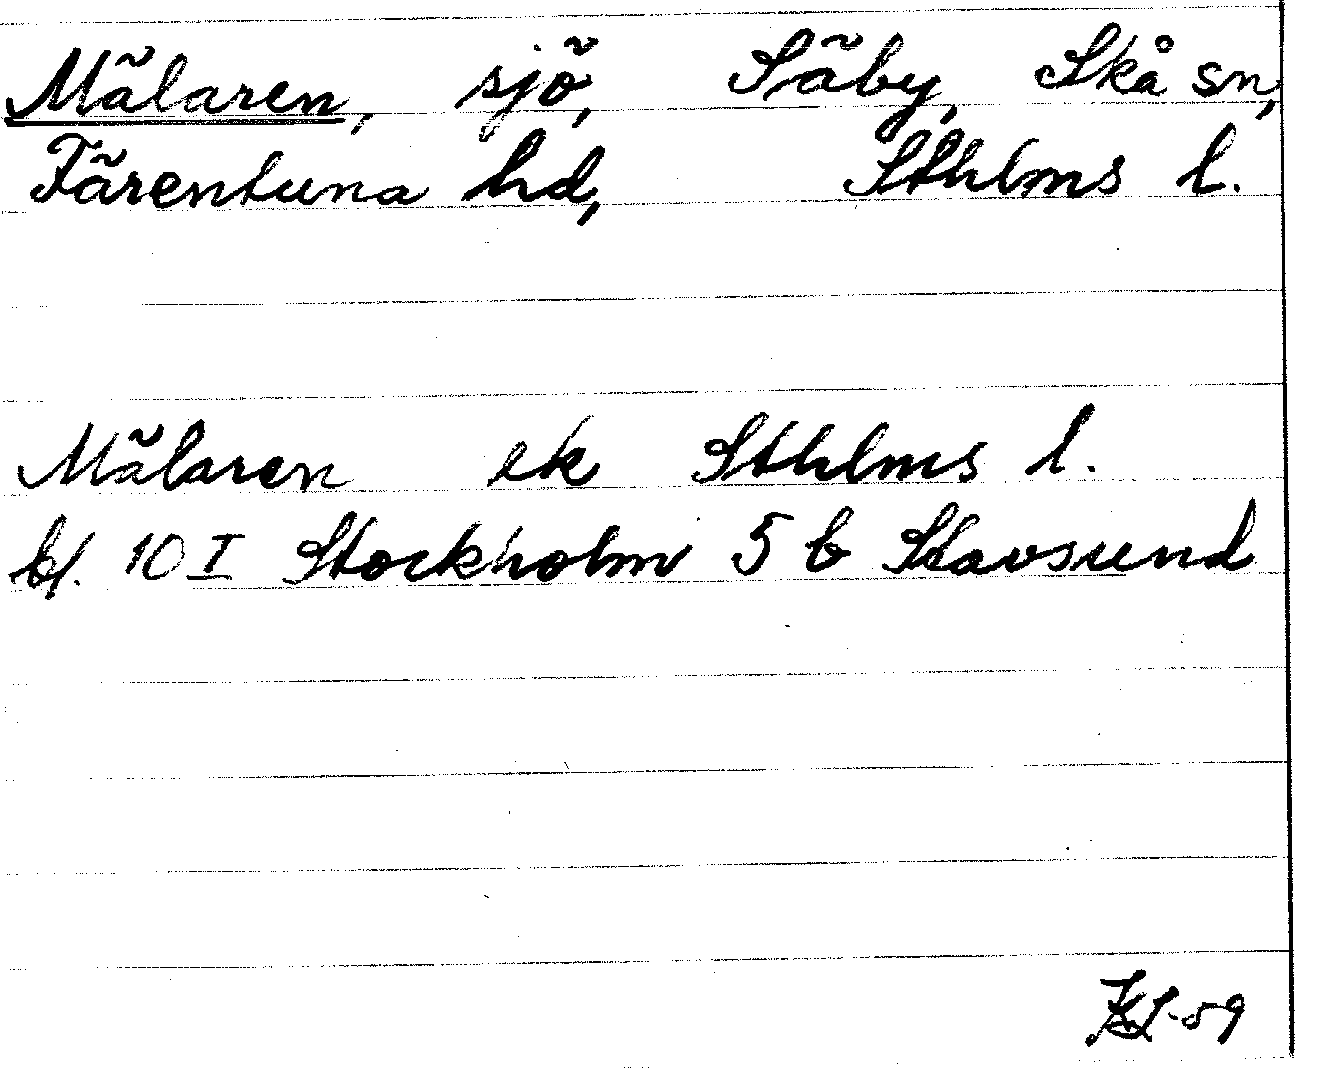 Mälaren, sjö, Säby, Skå sn,
Färentuna hd, Sthlms l.
Mälaren ek Sthlms l.
bl. 10 I Stockholm 5 b Stavsund
-59